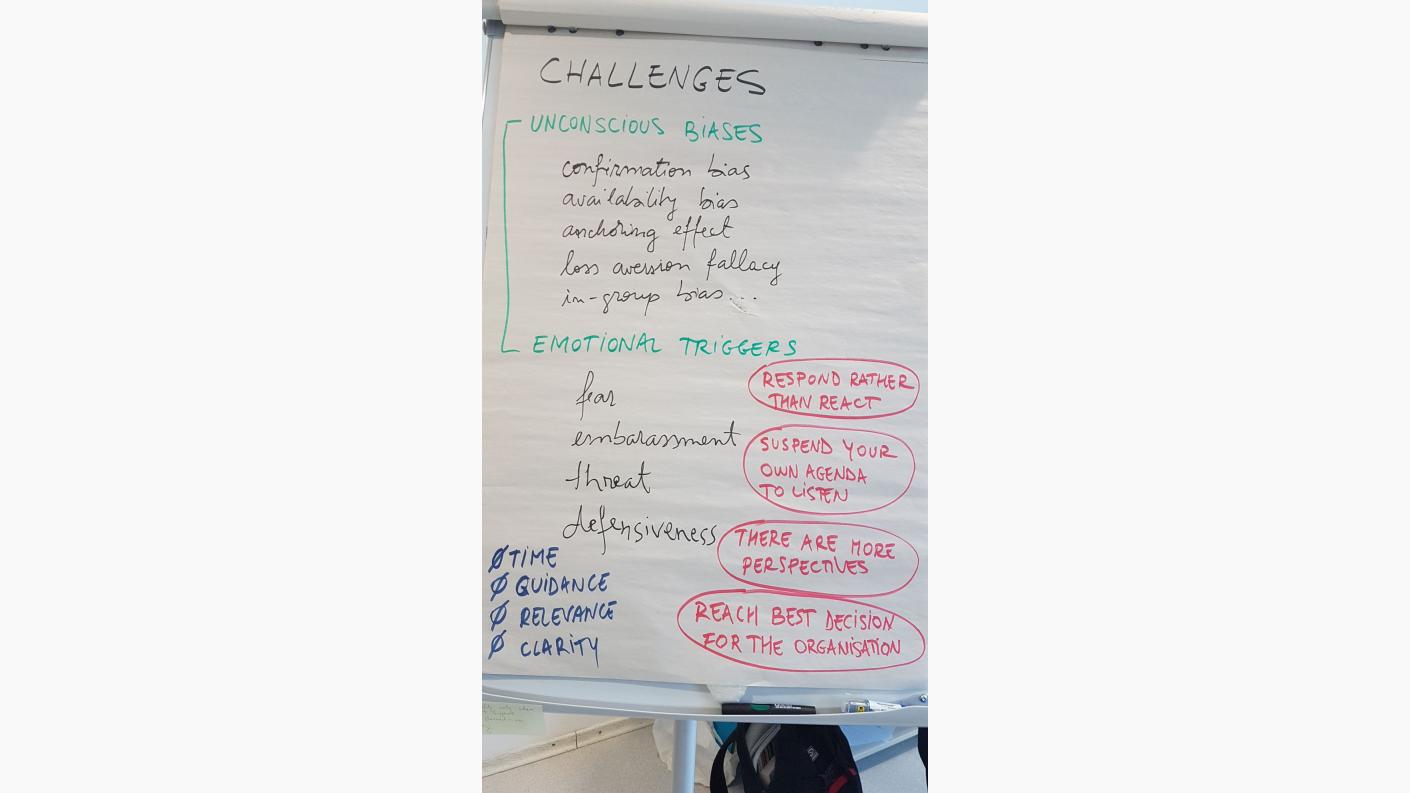 CHALLENGES
UNCONSCIOUS BIASES
confirmation bias
availability bias
anchoring effect
loss aversion fallacy
in-group bias...
EMOTIONAL TRIGGERS
fear
embarassment
threat
defensiveness
RESPOND RATHER
THAN REACT
SUSPEND YOUR
OWN AGENDA
TO LISTEN
THERE ARE MORE
PERSPECTIVES
REACH BEST DECISION
FOR THE ORGANISATION
Ø TIME
Ø GUIDANCE
Ø RELEVANCE
Ø CLARITY